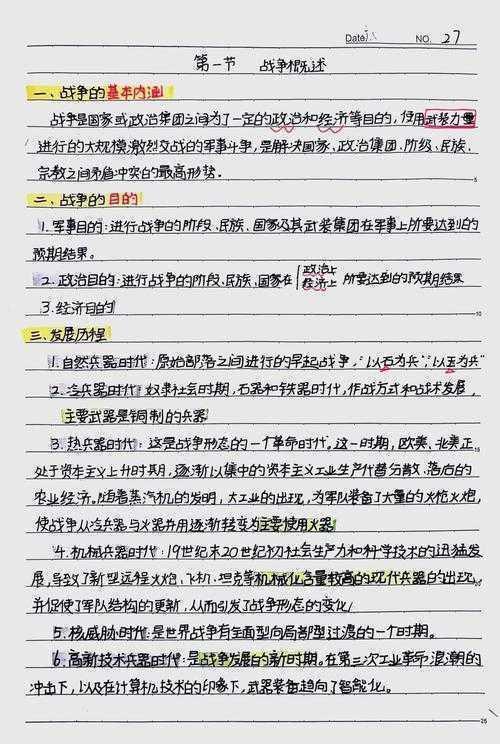 Date
NO. 27
第一节 战争概述
一、战争的基本内涵
战争是国家或政治集团之间为了一定的政治和经济等目的，使用武装力量
进行的大规模激烈交战的军事斗争，是解决国家、政治集团、阶级、民族、
宗教之间矛盾冲突的最高形势。
5
二、战争的目的
1.军事目的：进行战争的阶段、民族、国家及其武装集团在军事上所要达到的
预期结果。
2.政治目的：进行战争的阶段、民族、国家在 政治上 经济上 所要达到的预期结果
3.经济目的
10
三、发展历程
1.自然兵器时代：原始部落之间进行的早起战争，“以石为兵”，“以玉为兵”
2.冷兵器时代：奴隶社会时期，石器和铁器时代，作战方式和战术发展，
主要武器是铜制的兵器
3.热兵器时代：这是战争形态的一个革命时代。这一时期，欧美、北美正
处于资本主义上升时期，逐渐以集中的资本主义工业生产代替分散、落后的
农业经济。随着蒸汽机的发明，大工业的出现，为军队装备了大量的火枪火炮，
使战争从冷兵器与火器并用逐渐转变为主要使用火器
4.机械兵器时代：19世纪末20世纪初社会生产力和科学技术的迅猛发
展，导致了新型远程火炮、飞机、坦克等机械化含量较高的现代兵器的出现，
并促使了军队结构的更新，从而引发了战争形态的变化
5.核威胁时代：是世界战争有全面型向局部型过渡的一个时期。
6.高新技术兵器时代：是战争发展的新时期。在第三次工业革命浪潮的
冲击下，以及在计算机技术的印象下，武器装备趋向了智能化。
25